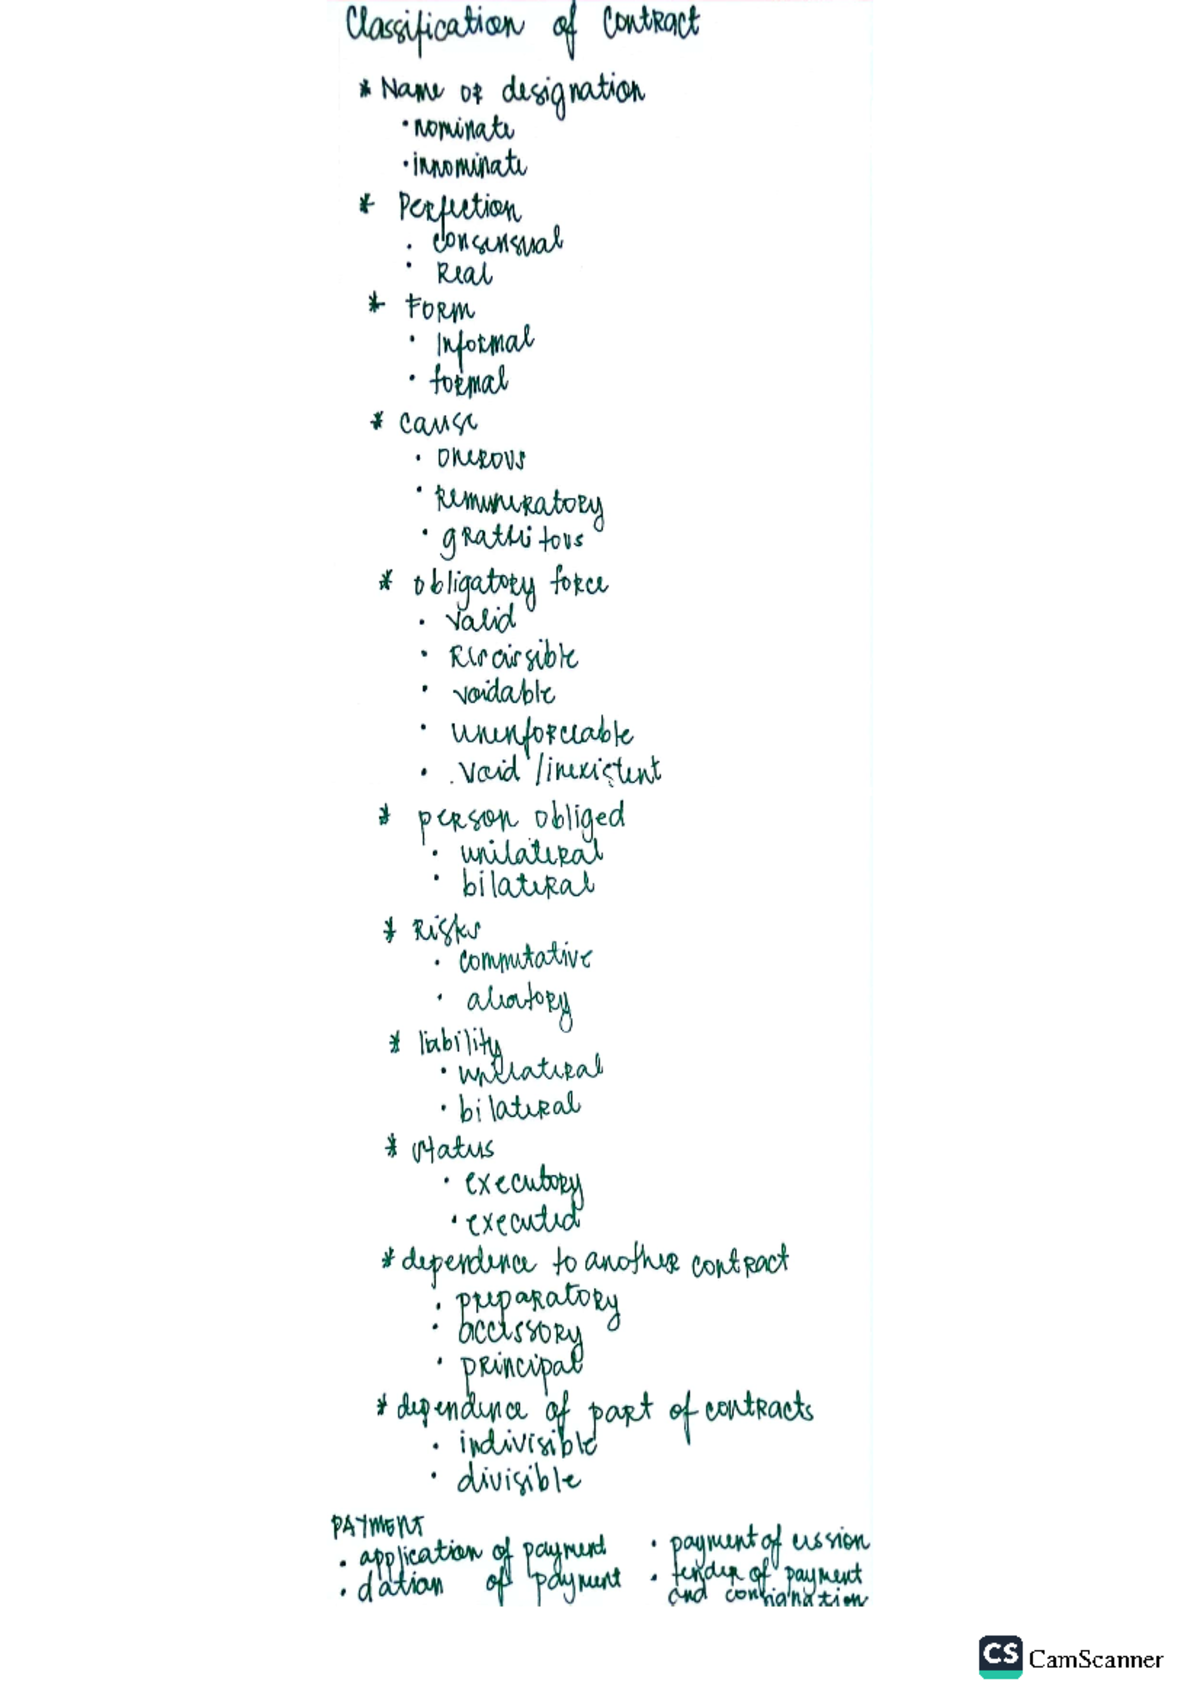 Classification of Contract
* Name or designation
• nominate
• innominate
* Perfection
• consensual
• Real
* Form
• Informal
• formal
* cause
• onerous
• Remuneratory
• grathitous
* obligatory force
• valid
• Rescissible
• voidable
• unenforceable
• .void / inexistent
* person obliged
• unilateral
• bilateral
* Risks
• commutative
• aleatory
* liability
• unilateral
• bilateral
* status
• executory
• executed
* dependence to another contract
• preparatory
• accessory
• principal
* dependence of part of contracts
• indivisible
• divisible
PAYMENT
• application of payment • payment of cession
• dation of payment • tender of payment
and consignation
CS CamScanner